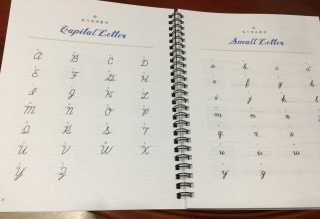 Capital Letter
A B C D
E F G H
I J K L
M N O P
Q R S T
U V W X
Y Z
Small Letter
a b c
e f g h
i j k l
m n o
q r s
u v w
y z